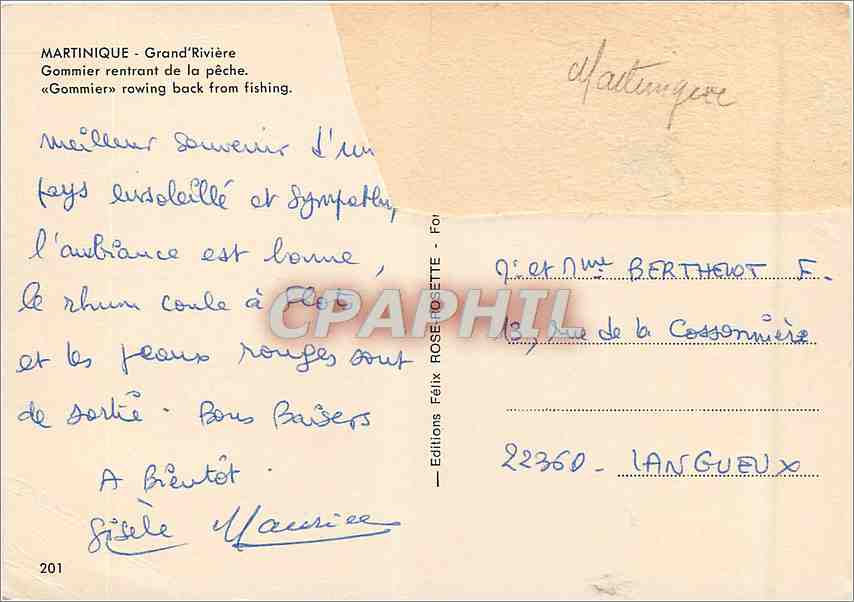 MARTINIQUE - Grand'Rivière
Gommier rentrant de la pêche.
«Gommier» rowing back from fishing.
Martinique
meilleur souvenir d'un
pays ensoleillé et sympathi
l'ambiance est bonne,
le rhum coule à flots
et les peaux rouges sont
de sortie. Bons Baisers
A Bientôt.
Gisèle Maurice
201
— Editions Félix ROSE-ROSETTE - For
Mr et Mme BERTHELOT F.
13, rue de la Cossonnière
22360 - LANGUEUX
CPAPHIL